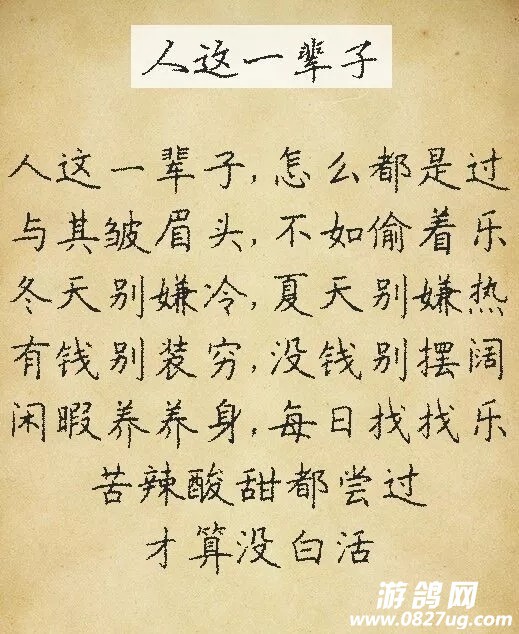 人这一辈子
人这一辈子,怎么都是过
与其皱眉头,不如偷着乐
冬天别嫌冷,夏天别嫌热
有钱别装穷,没钱别摆阔
闲暇养养身,每日找找乐
苦辣酸甜都尝过
才算没白活
游鸽网
www.0827ug.com